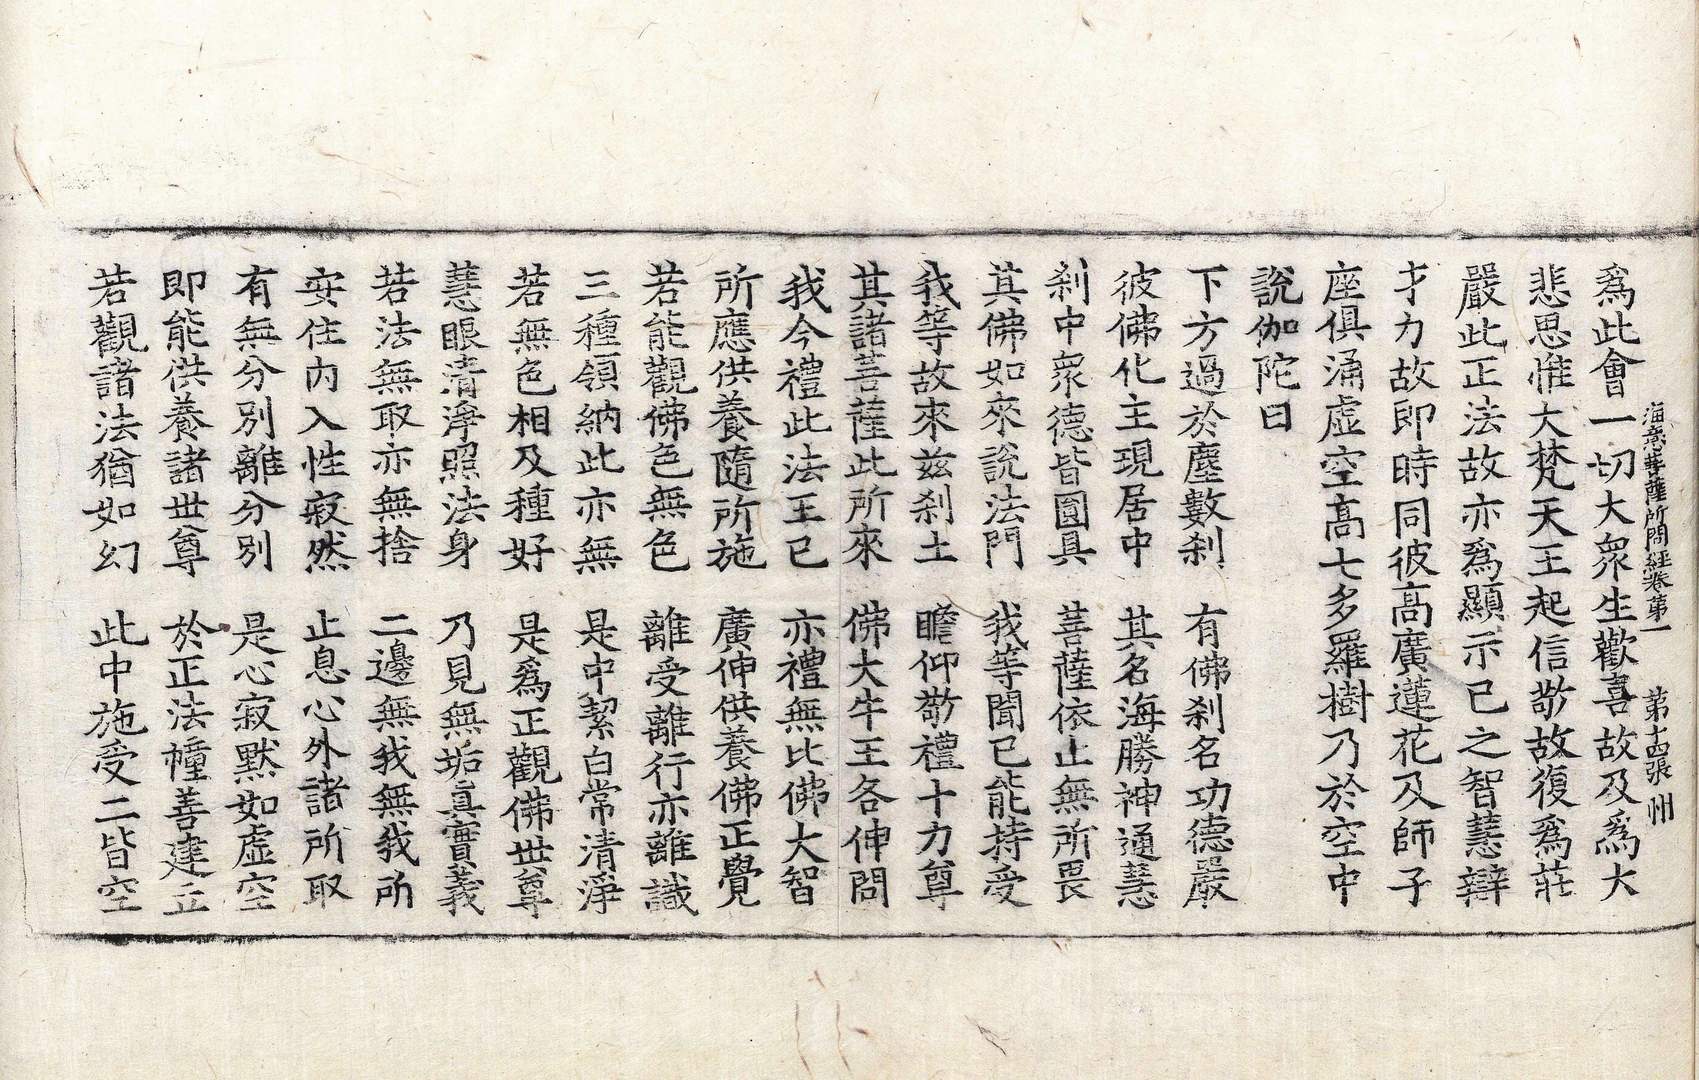 海意菩薩所問經卷第一　第十四張　州
爲此會一切大衆生歡喜故及爲大
悲思惟大梵天王起信敬故復爲莊
嚴此正法故亦爲顯示已之智慧辯
才力故即時同彼髙廣蓮花及師子
座俱涌虛空髙七多羅樹乃於空中
說伽陀曰
下方過於塵數刹　有佛刹名功德嚴
彼佛化主現居中　其名海勝神通慧
刹中衆德皆圓具　菩薩依止無所畏
其佛如來說法門　我等聞已能持受
我等故來兹刹土　瞻仰敬禮十力尊
其諸菩薩此所來　佛大牛王各伸問
我今禮此法王已　亦禮無比佛大智
所應供養隨所施　廣伸供養佛正覺
若能觀佛色無色　離受離行亦離識
三種領納此亦無　是中絜白常清淨
若無色相及種好　是爲正觀佛世尊
慧眼清淨照法身　乃見無垢眞實義
若法無取亦無捨　二邊無我無我所
安住内入性寂然　止息心外諸所取
有無分別離分別　是心寂默如虛空
即能供養諸世尊　於正法幢善建立
若觀諸法猶如幻　此中施受二皆空